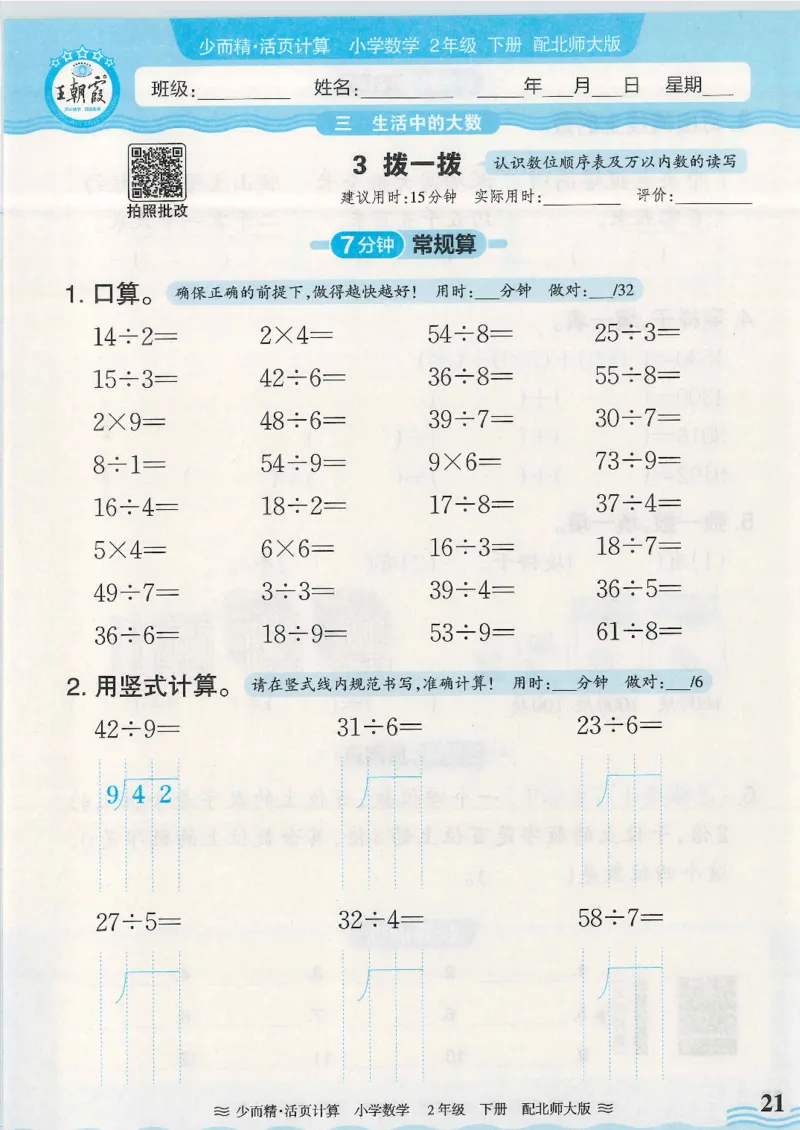 少而精·活页计算 小学数学 2年级 下册 配北师大版
王朝霞
班级:________ 姓名:________ ____年___月___日 星期___
三 生活中的大数
拍照批改
3 拨一拨 认识数位顺序表及万以内数的读写
建议用时:15分钟 实际用时:________ 评价:________
7分钟 常规算
1. 口算。 确保正确的前提下,做得越快越好! 用时:___分钟 做对:___/32
14÷2= 2×4= 54÷8= 25÷3=
15÷3= 42÷6= 36÷8= 55÷8=
2×9= 48÷6= 39÷7= 30÷7=
8÷1= 54÷9= 9×6= 73÷9=
16÷4= 18÷2= 17÷8= 37÷4=
5×4= 6×6= 16÷3= 18÷7=
49÷7= 3÷3= 39÷4= 36÷5=
36÷6= 18÷9= 53÷9= 61÷8=
2. 用竖式计算。 请在竖式线内规范书写,准确计算! 用时:___分钟 做对:___/6
42÷9= 31÷6= 23÷6=
9 4 2
27÷5= 32÷4= 58÷7=
少而精·活页计算 小学数学 2年级 下册 配北师大版
21